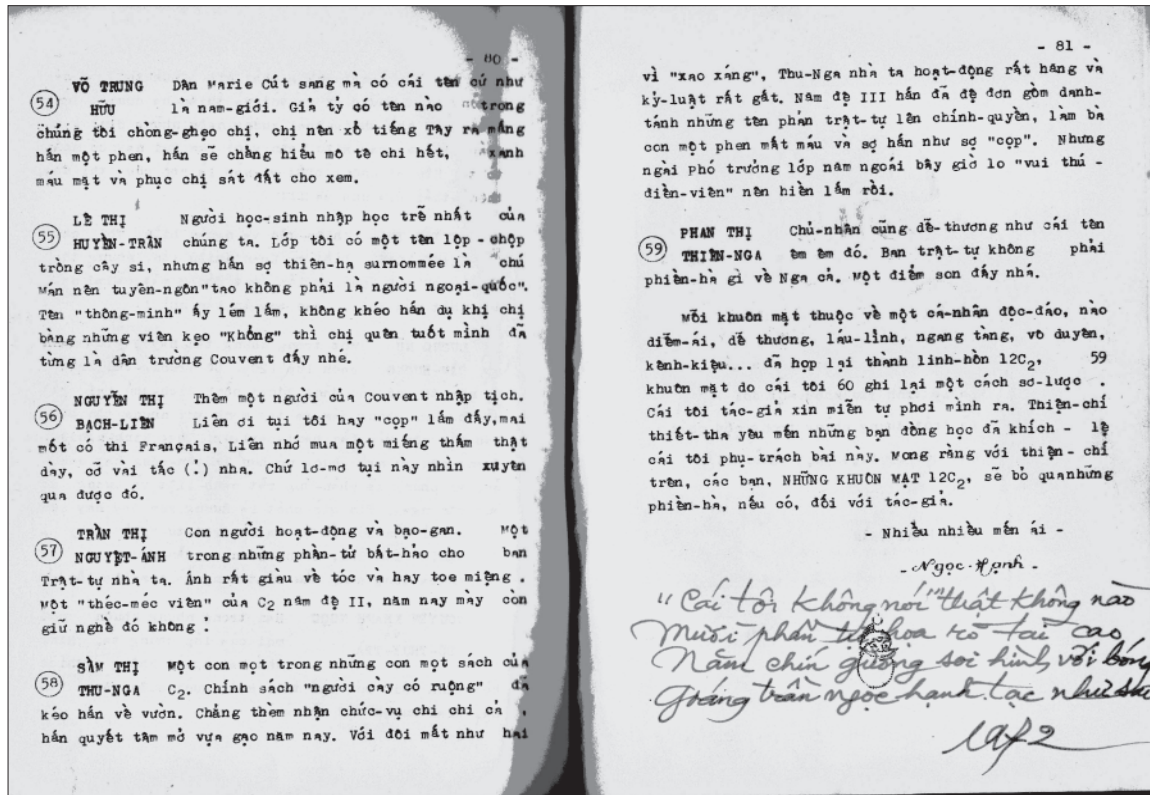 - 80 -
VÕ TRUNG Dân Marie Cút sang mà có cái tên cứ như
54 HỮU là nam-giới. Giả tỷ có tên nào trong
chúng tôi chòng-ghẹo chị, chị nên xổ tiếng Tây ra mắng
hắn một phen, hắn sẽ chẳng hiểu mô tê chi hết, xanh
máu mặt và phục chị sát đất cho xem.
LÊ THỊ Người học-sinh nhập học trễ nhất của
55 HUYỀN-TRÂN chúng ta. Lớp tôi có một tên lộp-chộp
trồng cây si, nhưng hắn sợ thiên-hạ surnommée là chú
Mán nên tuyên-ngôn "tao không phải là người ngoại-quốc".
Tên "thông-minh" ấy lém lắm, không khéo hắn dụ khị chị
bằng những viên kẹo "Khổng" thì chị quên tuốt mình đã
từng là dân trường Couvent đấy nhé.
NGUYỄN THỊ Thêm một người của Couvent nhập tịch.
56 BẠCH-LIÊN Liên ơi tụi tôi hay "cọp" lắm đấy, mai
mốt có thi Français, Liên nhớ mua một miếng thấm thật
dày, cỡ vài tấc (!) nha. Chứ lơ-mơ tụi này nhìn xuyên
qua được đó.
TRẦN THỊ Con người hoạt-động và bạo-gan. Một
57 NGUYỆT-ÁNH trong những phần-tử bất-hảo cho ban
Trật-tự nhà ta. Ánh rất giàu về tóc và hay toe miệng.
Một "théc-méc viên" của C2 năm đệ II, năm nay mày còn
giữ nghề đó không !
SẦM THỊ Một con mọt trong những con mọt sách của
58 THU-NGA C2. Chính sách "người cày có ruộng" đã
kéo hắn về vườn. Chẳng thèm nhận chức-vụ chi chi cả,
hắn quyết tâm mở vựa gạo năm nay. Với đôi mắt như hai
- 81 -
vì "xao xáng", Thu-Nga nhà ta hoạt-động rất hăng và
kỷ-luật rất gắt. Năm đệ III hắn đã đệ đơn gồm danh-
tánh những tên phản trật-tự lên chính-quyền, làm bà
con một phen mất máu và sợ hắn như sợ "cọp". Nhưng
ngài Phó trưởng lớp năm ngoái bây giờ lo "vui thú -
điền-viên" nên hiền lắm rồi.
PHAN THỊ Chủ-nhân cũng dễ-thương như cái tên
59 THIÊN-NGA êm êm đó. Ban trật-tự không phải
phiền-hà gì về Nga cả. Một điểm son đấy nhá.
Mỗi khuôn mặt thuộc về một cá-nhân độc-đáo, nào
diễm-ái, dễ thương, láu-lỉnh, ngang tàng, vô duyên,
kênh-kiệu... đã họp lại thành linh-hồn 12C2, 59
khuôn mặt do cái tôi 60 ghi lại một cách sơ-lược .
Cái tôi tác-giả xin miễn tự phơi mình ra. Thiện-chí
thiết-tha yêu mến những bạn đồng học đã khích - lệ
cái tôi phụ-trách bài này. Mong rằng với thiện-chí
trên, các bạn, NHỮNG KHUÔN MẶT 12C2, sẽ bỏ quanhững
phiền-hà, nếu có, đối với tác-giả.
- Nhiều nhiều mến ái -
- Ngọc-Hạnh -
"Cái tôi không nói" thật không nào
Mười phần tụi hoa rõ tài cao
Năm chín gương soi hình với bóng
Giáng trần ngọc hạnh tạc như sau